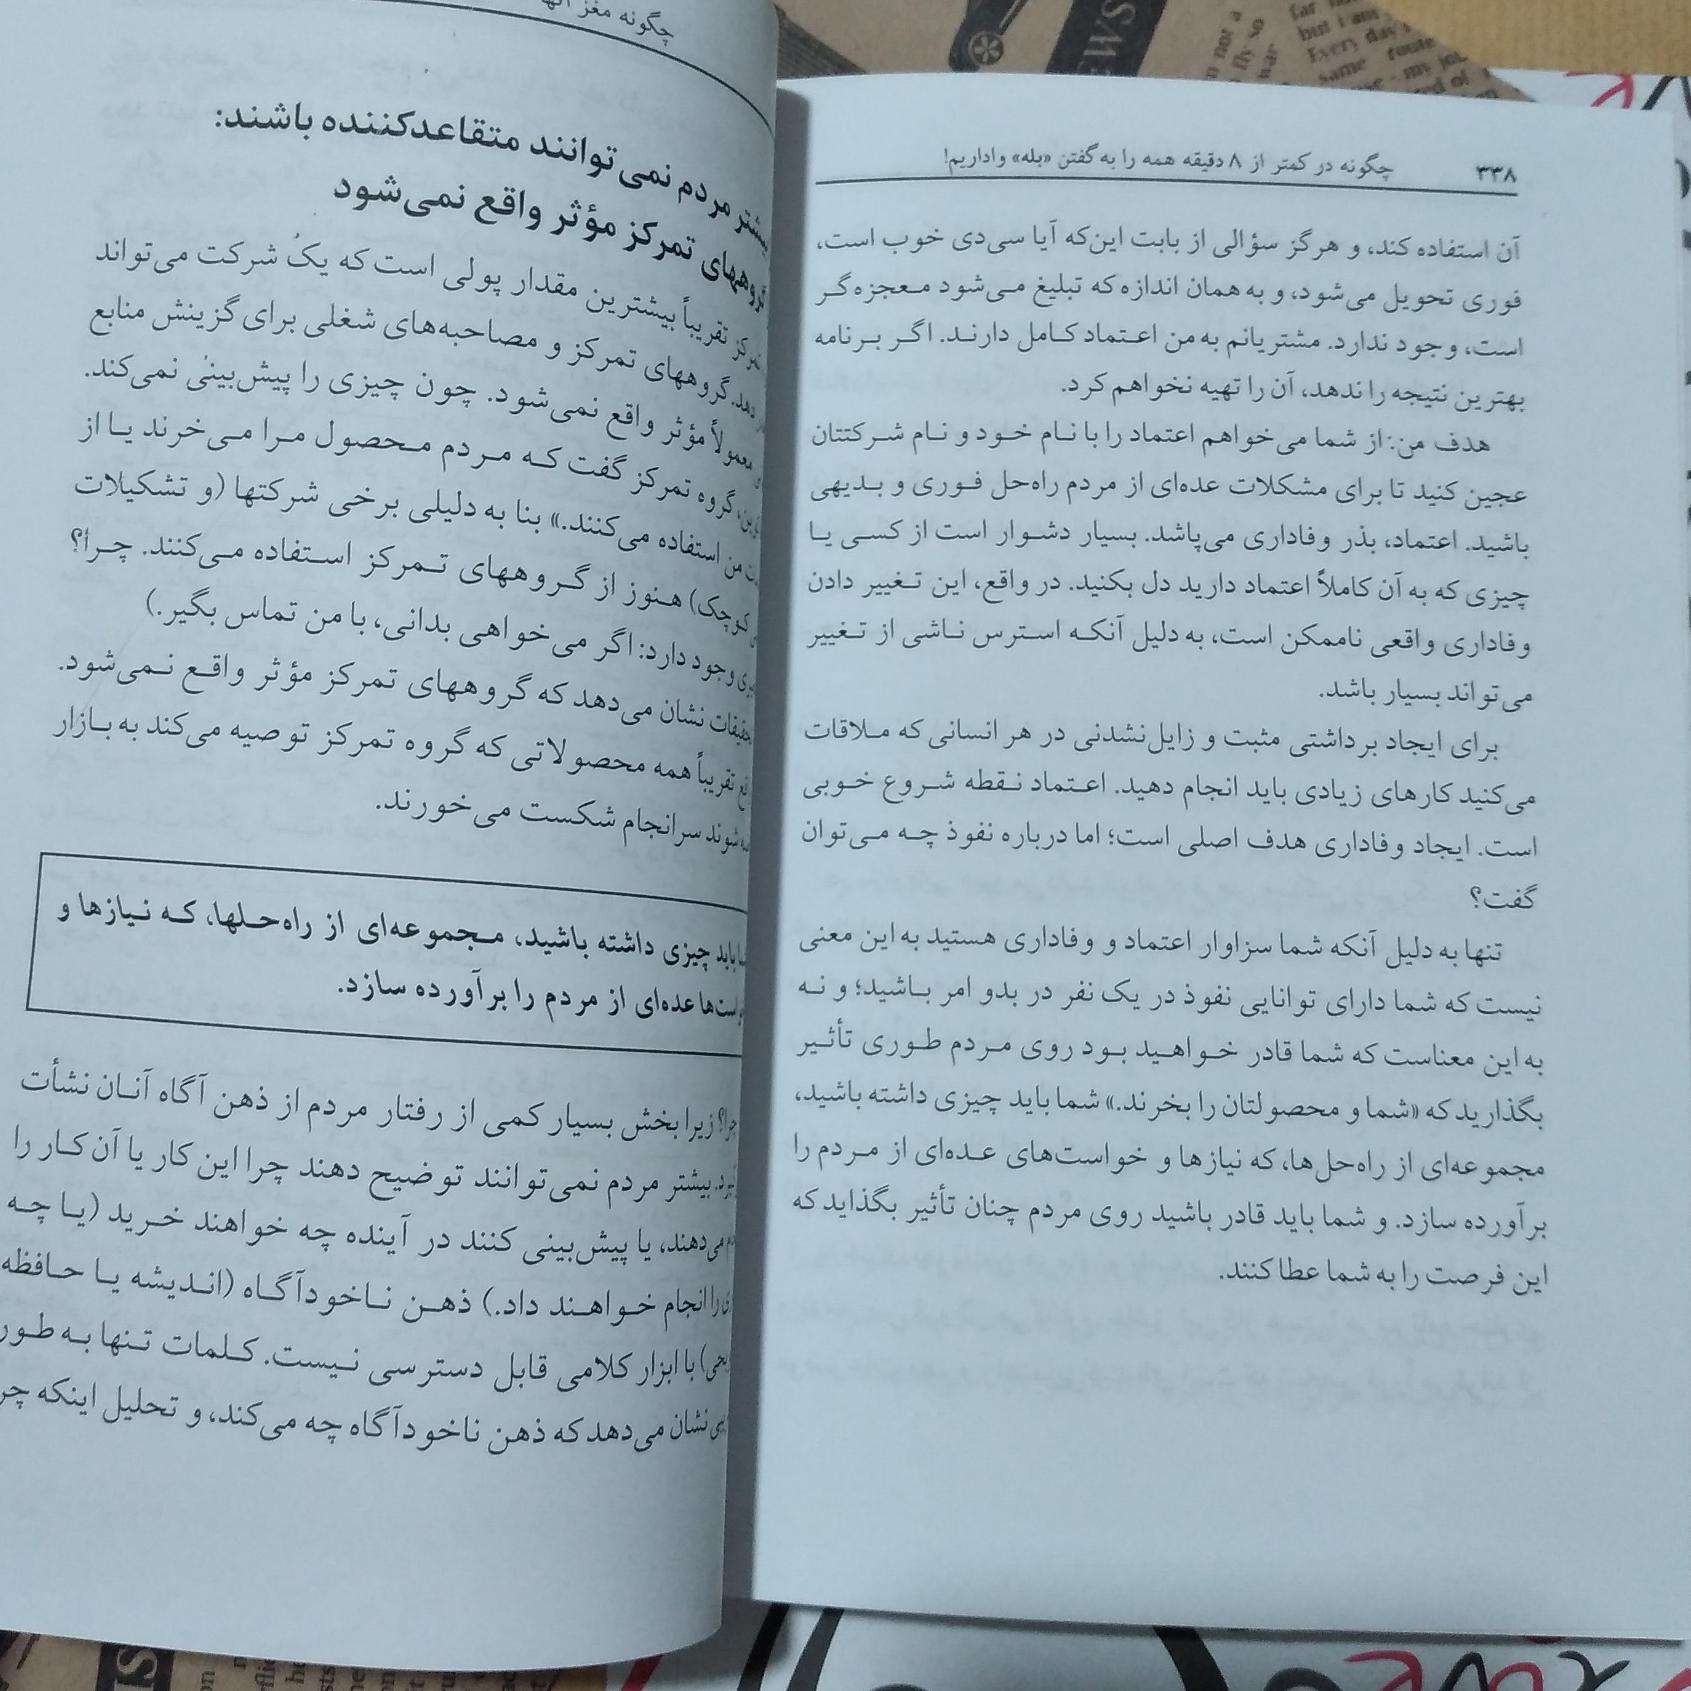 ۳۳۸
چگونه در کمتر از ۸ دقیقه همه را به گفتن «بله» واداریم!
آن استفاده کند، و هرگز سؤالی از بابت این‌که آیا سی‌دی خوب است،
فوری تحویل می‌شود، و به همان اندازه که تبلیغ می‌شود معجزه‌گر
است، وجود ندارد. مشتریانم به من اعتماد کامل دارند. اگر برنامه
بهترین نتیجه را ندهد، آن را تهیه نخواهم کرد.
هدف من: از شما می‌خواهم اعتماد را با نام خود و نام شرکتتان
عجین کنید تا برای مشکلات عده‌ای از مردم راه‌حل فوری و بدیهی
باشید. اعتماد، بذر وفاداری می‌پاشد. بسیار دشوار است از کسی یا
چیزی که به آن کاملاً اعتماد دارید دل بکنید. در واقع، این تغییر دادن
وفاداری واقعی ناممکن است، به دلیل آنکه استرس ناشی از تغییر
می‌تواند بسیار باشد.
برای ایجاد برداشتی مثبت و زایل‌نشدنی در هر انسانی که ملاقات
می‌کنید کارهای زیادی باید انجام دهید. اعتماد نقطه شروع خوبی
است. ایجاد وفاداری هدف اصلی است؛ اما درباره نفوذ چه می‌توان
گفت؟
تنها به دلیل آنکه شما سزاوار اعتماد و وفاداری هستید به این معنی
نیست که شما دارای توانایی نفوذ در یک نفر در بدو امر باشید؛ و نه
به این معناست که شما قادر خواهید بود روی مردم طوری تأثیر
بگذارید که «شما و محصولتان را بخرند.» شما باید چیزی داشته باشید،
مجموعه‌ای از راه‌حل‌ها، که نیازها و خواست‌های عده‌ای از مردم را
برآورده سازد. و شما باید قادر باشید روی مردم چنان تأثیر بگذاید که
این فرصت را به شما عطا کنند.
چگونه مغز
مردم نمی‌توانند متقاعدکننده باشند:
تمرکز مؤثر واقع نمی‌شود
تقریباً بیشترین مقدار پولی است که یک شرکت می‌تواند
گروههای تمرکز و مصاحبه‌های شغلی برای گزینش منابع
معمولاً مؤثر واقع نمی‌شود. چون چیزی را پیش‌بینی نمی‌کند.
گروه تمرکز گفت که مردم محصول مرا می‌خرند یا از
من استفاده می‌کنند.» بنا به دلیلی برخی شرکتها (و تشکیلات
کوچک) هنوز از گروههای تمرکز استفاده می‌کنند. چرا؟
وجود دارد: اگر می‌خواهی بدانی، با من تماس بگیر.)
نشان می‌دهد که گروههای تمرکز مؤثر واقع نمی‌شود.
تقریباً همه محصولاتی که گروه تمرکز توصیه می‌کند به بازار
شوند سرانجام شکست می‌خورند.
باید چیزی داشته باشید، مجموعه‌ای از راه‌حلها، که نیازها و
عده‌ای از مردم را برآورده سازد.
چرا؟ زیرا بخش بسیار کمی از رفتار مردم از ذهن آگاه آنان نشأت
بیشتر مردم نمی‌توانند توضیح دهند چرا این کار یا آن کار را
می‌دهند، یا پیش‌بینی کنند در آینده چه خواهند خرید (یا چه
را انجام خواهند داد.) ذهن ناخودآگاه (اندیشه یا حافظه
با ابزار کلامی قابل دسترسی نیست. کلمات تنها به طور
نشان می‌دهد که ذهن ناخودآگاه چه می‌کند، و تحلیل اینکه
NEWS